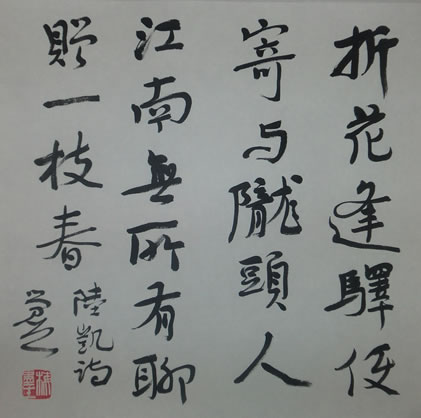 折花逢驛使
寄与隴頭人
江南無所有聊
贈一枝春
陸凱詩